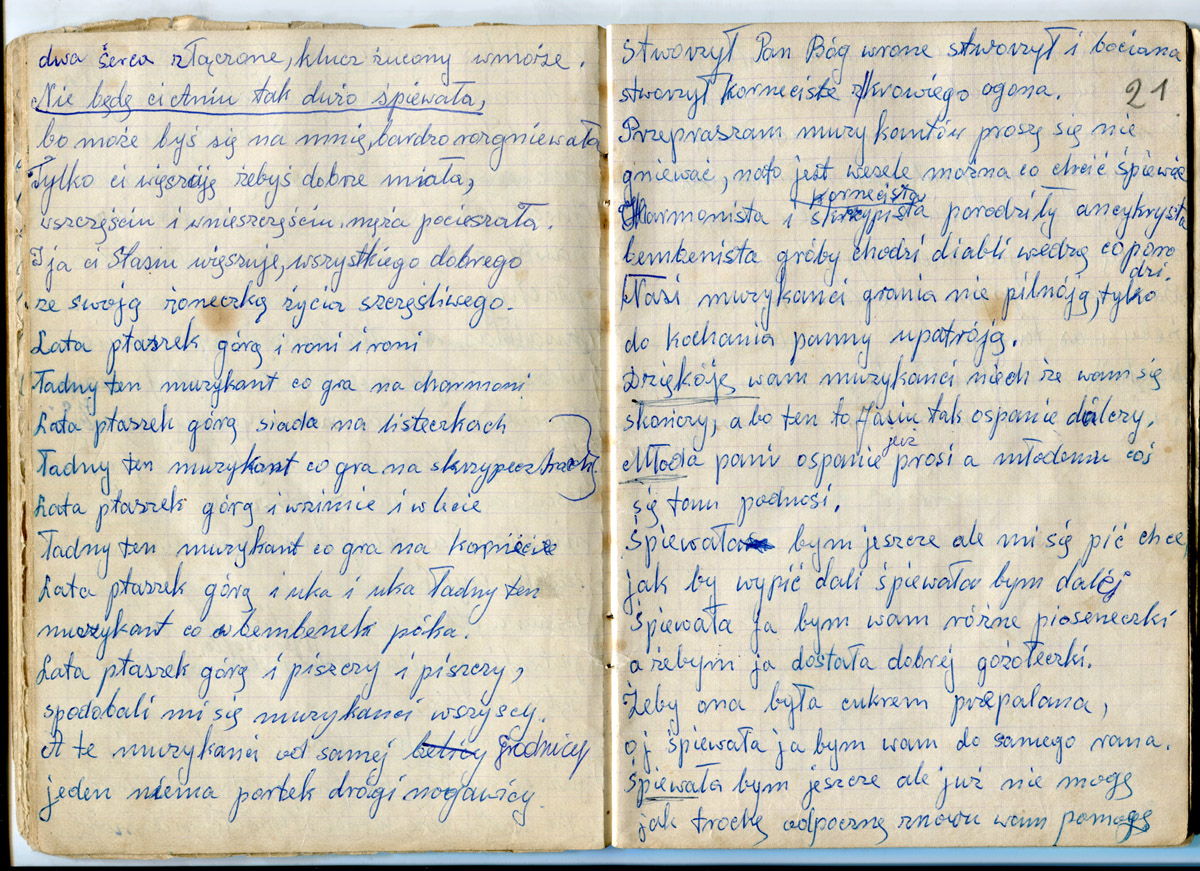 dwa serca złączone, klucz żucony wmoże.
Nie będę ci Aniu tak dużo śpiewała,
bo może byś się na mnię, bardzo rozgniewała
Tylko ci więszuję żebyś dobrze miała,
wszczęściu i wnieszczęściu, męża pocieszała.
I ja ci Stasiu więszuje, wszystkiego dobrego
ze swoją żoneczką życia szczęśliwego.
Lata ptaszek górą i roni i roni
Ładny ten muzykant co gra na charmoni
Lata ptaszek górą siada na listeczkach
Ładny ten muzykant co gra na skrzypeczkach
Lata ptaszek górą i wzimie i w lecie
Ładny ten muzykant co gra na kornecie
Lata ptaszek górą i uka i uka Ładny ten
muzykant co w bembenek póka.
Lata ptaszek górą i piszczy i piszczy,
spodobali mi się muzykanci wszyscy.
A te muzykanci od samej Grodnicy
jeden niema portek drógi nogawicy.
21
Stworzył Pan Bóg wrone stworzył i bociana
stworzył korneciste z krowiego ogona.
Przepraszam muzykantów proszę się nie
gniewać, nato jest wesele można co chcić śpiewać
Harmonista i skrzypista kornecista porodziły ancykrysta
bembenista gróby chodzi diabli wiedzę co poro
dzi.
Nasi muzykanci grania nie pilnóją, tylko
do kochania panny upatróją.
Dziękóję wam muzykanci niech że wam się
skończy, a bo ten to Jasiu tak ospanie dólczy.
Młoda pani ospanie już prosi a młodemu coś
się tam podnosi.
Śpiewała bym jeszcze ale mi się pić chce,
jak by wypić dali śpiewała bym daléj
Śpiewała ja bym wam różne pioseneczki
a żebym ja dostała dobréj gozołeczki.
Żeby ona była cukrem przepalana,
oj śpiewała ja bym wam do samego rana.
Śpiewała bym jeszcze ale już nie mogę
jak trochę odpocznę znowu wam pomogę